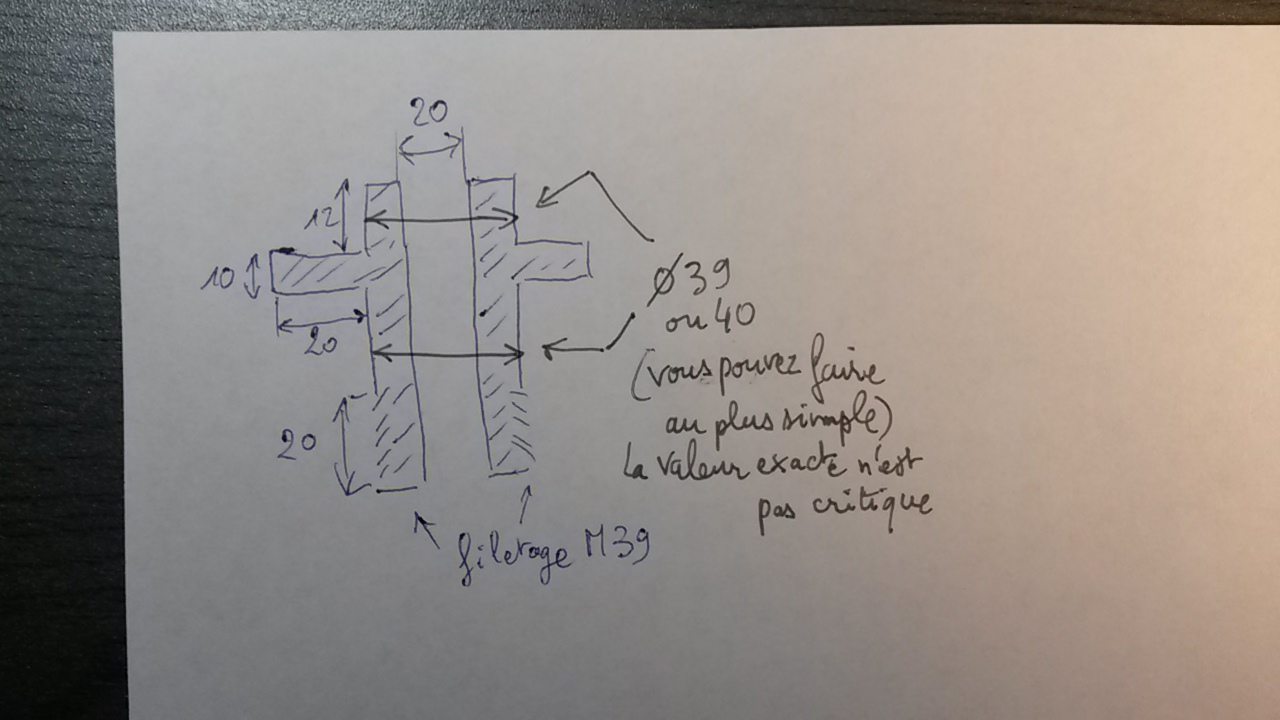 20
12
10
20
Ø39
ou 40
(vous pouvez faire
au plus simple)
La valeur exacte n'est
pas critique
20
filetage M39